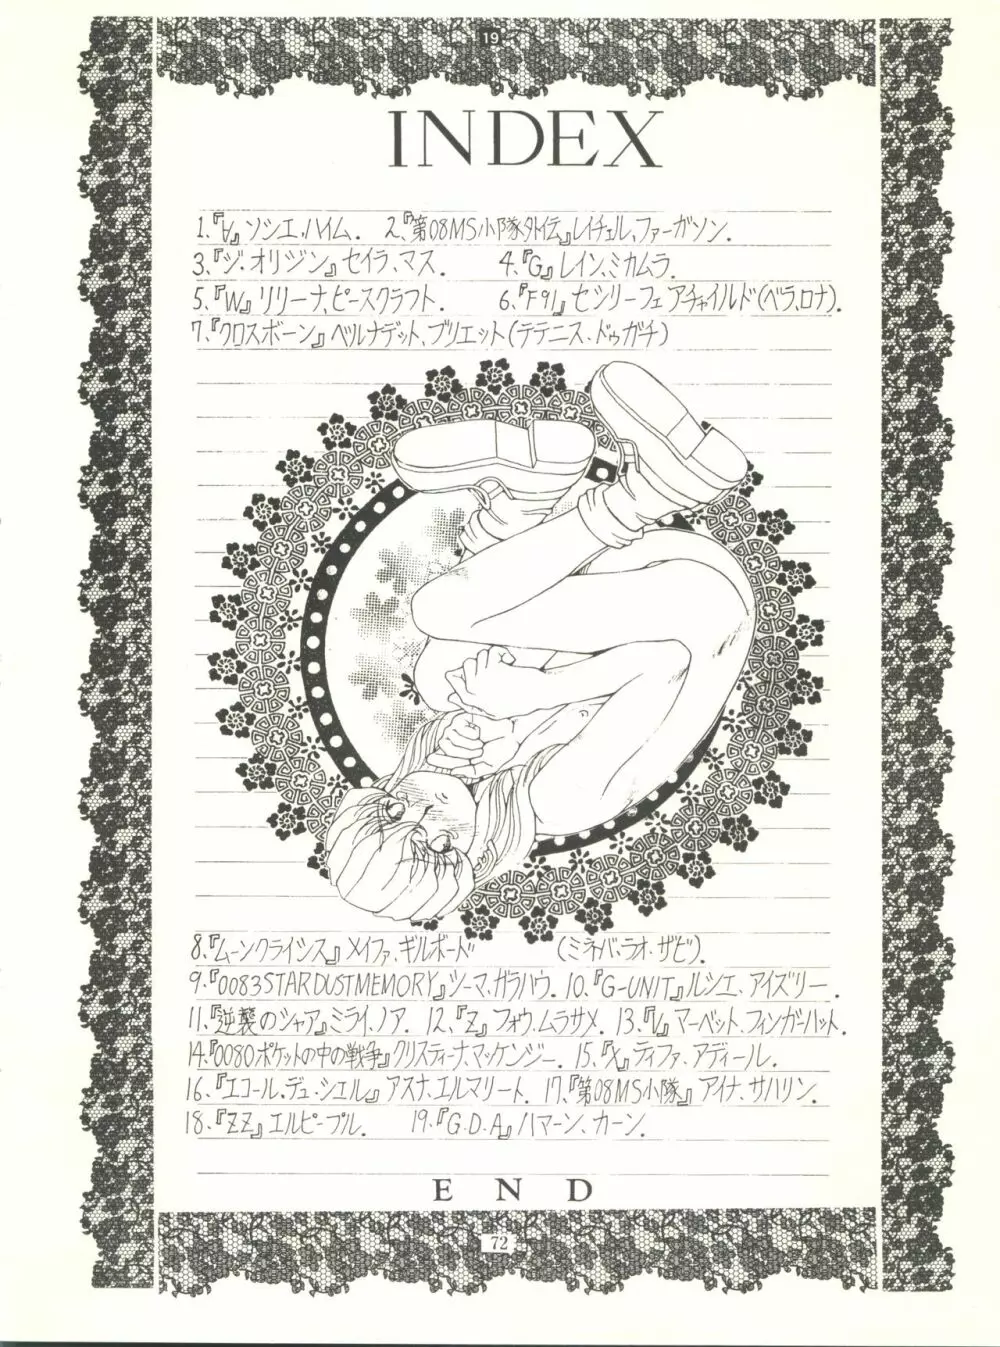 19
INDEX
1、『∀』ソシエ、ハイム. 2、『第08MS小隊外伝』レイチェル、ファーガソン.
3、『ジ・オリジン』セイラ、マス. 4、『G』レイン、ミカムラ.
5、『W』リリーナ、ピースクラフト. 6、『F91』セシリーフェアチャイルド(ベラ、ロナ).
7、『クロスボーン』ベルナデット、ブリエット(テテニス・ドゥガチ)
8、『ムーンクライシス』メイファ、ギルボード (ミネバ・ラオ・ザビ).
9、『0083STARDUSTMEMORY』シーマ、ガラハウ. 10、『G-UNIT』ルシエ、アイズリー.
11、『逆襲のシャア』ミライ、ノア. 12、『Z』フォウ、ムラサメ. 13、『V』マーベット、フィンガーハット.
14、『0080ポケットの中の戦争』クリスティーナ、マッケンジー. 15、『X』ティファ、アディール.
16、『エコール、デュ・シエル』アスナ、エルマリート. 17、『第08MS小隊』アイナ、サハリン.
18、『ZZ』エルピープル. 19、『G.D.A』ハマーン、カーン.
END
72